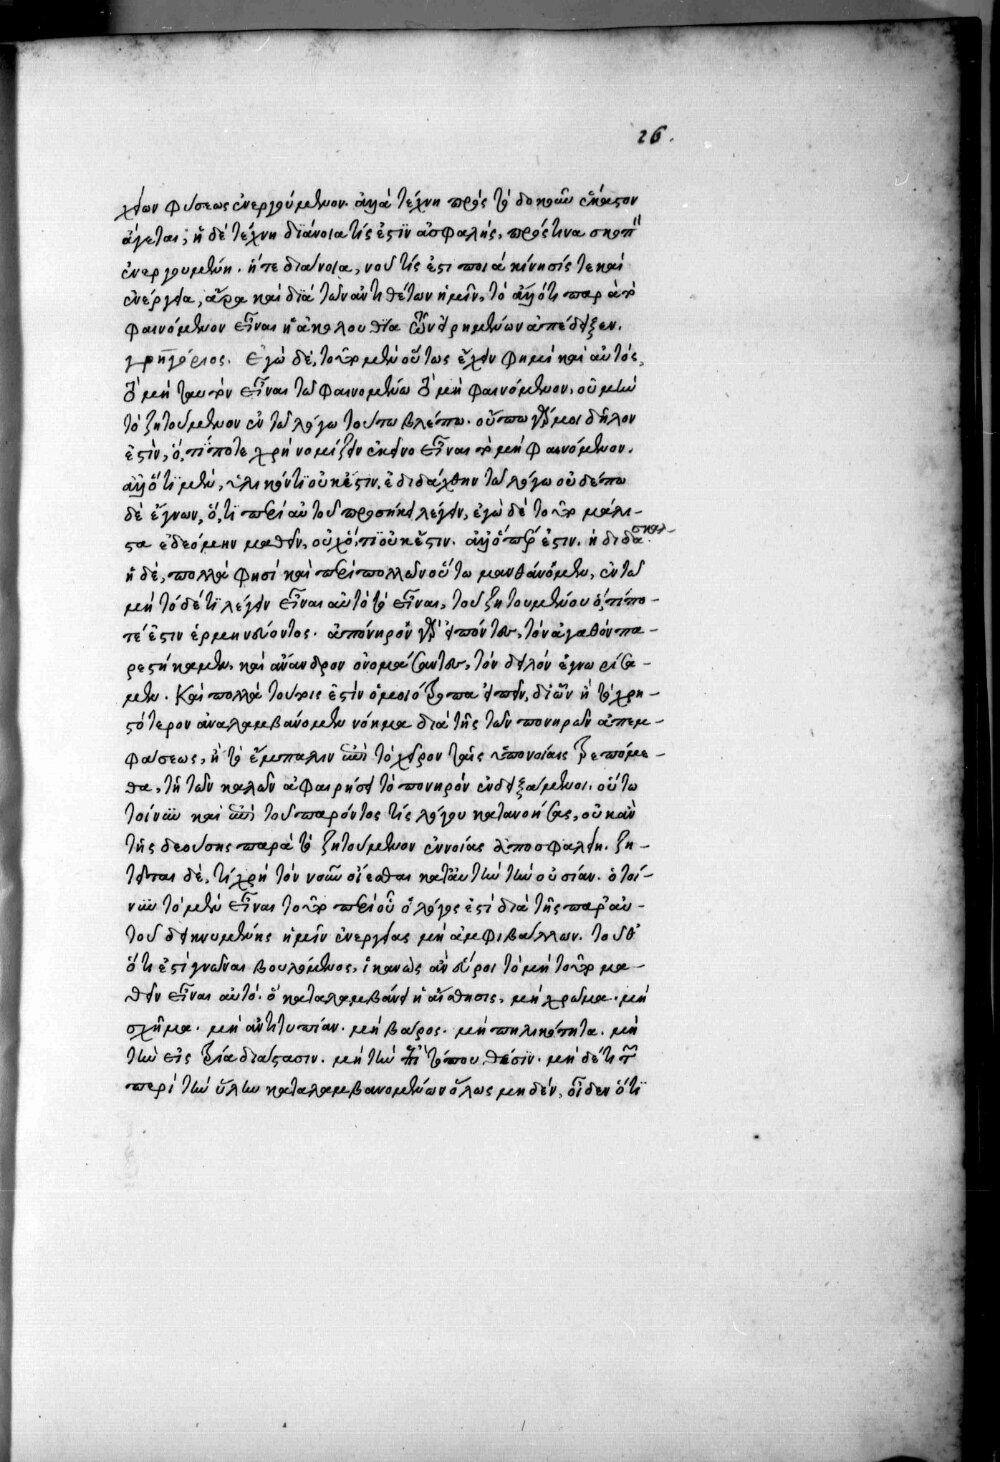 26.
χείων φύσεως ἐνεργούμενον. ἀλλὰ τέχνη πρὸς τὸ δοκοῦν ἕκαστον
ἄγεται, ἡ δὲ τέχνη διάνοια τίς ἐστιν ἀσφαλής, πρός τινα σκοπὸν
ἐνεργουμένη. ἥτε διάνοια, νοῦ τίς ἐστι ποιὰ κίνησίς τε καὶ
ἐνέργεια, ἄρα καὶ διὰ τῶν ἀντιθέτων ἡμῖν, τὸ ἄλλό τι παρὰ τὸ
φαινόμενον εἶναι ἡ ἀκολουθία τῶν εἰρημένων ἀπέδειξεν.
γρηγόριος. Ἐγὼ δὲ, τοῦτο μὲν οὕτως ἔχειν φημὶ καὶ αὐτός,
τὸ μὴ ταυτὸν εἶναι τῶ φαινομένω τὸ μὴ φαινόμενον, οὐ μὴν
τὸ ζητούμενον ἐν τῶ λόγω τούτω βλέπω. οὔπω γάρ μοι δῆλον
ἐστὶν, ὅ, τί ποτε χρὴ νομίζειν ἐκεῖνο εἶναι τὸ μὴ φαινόμενον.
ἀλλ' ὅτι μὲν, ὑλικόν τι οὐκ ἔστιν, ἐδιδάχθην τῶ λόγω οὐδέπω
δὲ ἔγνων, ὅ, τι περὶ αὐτοῦ προσήκει λέγειν, ἐγὼ δὲ τοῦτο μάλι-
στα ἐδεόμην μαθεῖν, οὐχ ὅ, τι οὐκ ἔστιν. ἀλλ' ὅπερ ἐστιν. ἡ διδάσκαλ.
ἡ δὲ, πολλὰ φησὶ καὶ περὶ πολλῶν οὕτω μανθάνομεν, ἐν τῶ
μὴ τόδε τι λέγειν εἶναι αὐτὸ τὸ εἶναι, τοῦ ζητουμένου ὅ, τί πο-
τέ ἐστιν ἑρμηνεύοντος. ἀπόνηρον γὰρ εἰπόντες, τὸν ἀγαθὸν πα-
ρεστήσαμεν, καὶ ἄνανδρον ὀνομάσαντες, τὸν δειλὸν ἐγνωρίσα-
μεν. Καὶ πολλὰ τούτοις ἐστὶν ὁμοιότροπα εἰπεῖν, δι' ὧν ἢ τὸ χρη-
στότερον ἀναλαμβάνομεν νόημα διὰ τῆς τῶν πονηρῶν ἀπεμ-
φάσεως, ἢ τὸ ἔμπαλιν ἐπὶ τὸ χεῖρον ταῖς ὑπονοίαις τρεπόμε-
θα, τῇ τῶν καλῶν ἀφαιρέσει τὸ πονηρὸν ἐνδειξάμενοι. οὕτω
τοίνυν καὶ ἐπὶ τοῦ παρόντος τίς λόγου κατανοήσας, οὐκ ἂν
τῆς δεούσης παρὰ τὸ ζητούμενον ἐννοίας ἀποσφαλείη. ζη-
τεῖται δὲ, τί χρὴ τὸν νοῦν οἴεσθαι κατ' αὐτὴν τὴν οὐσίαν. ὁ τοί-
νυν τὸ μὲν εἶναι τοῦτο περὶ οὗ ὁ λόγος ἐστὶ διὰ τῆς παρ' αὐ-
τοῦ δεικνυμένης ἡμῖν ἐνεργείας μὴ ἀμφιβάλλων. τοῦθ'
ὅτι ἐστὶ γνῶναι βουλόμενος, ἱκανῶς ἂν εὕροι τὸ μὴ τοῦτο μα-
θεῖν εἶναι αὐτὸ. ὃ καταλαμβάνει ἡ αἴσθησις, μὴ χρῶμα. μὴ
σχῆμα. μὴ ἀντιτυπίαν. μὴ βάρος. μὴ πηλικότητα. μὴ
τὴν εἰς τρία διάστασιν. μὴ τὴν ἐπὶ τόπου θέσιν. μὴ δέ τι τῶν
περὶ τὴν ὕλην καταλαμβανομένων ὅλως μηδέν, οἶδεν ὅτι